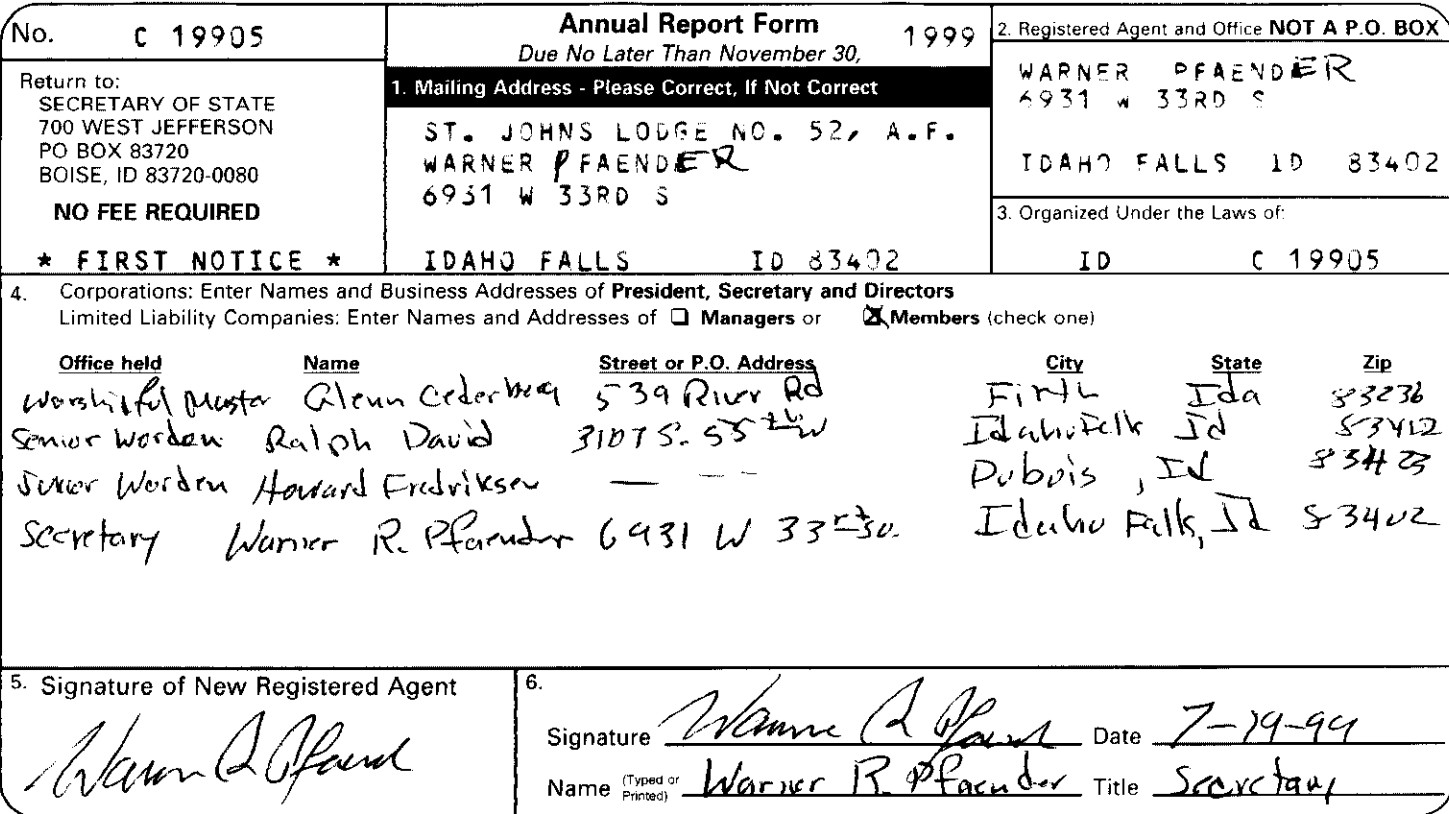 No. C 19905
Return to:
SECRETARY OF STATE
700 WEST JEFFERSON
PO BOX 83720
BOISE, ID 83720-0080
NO FEE REQUIRED
* FIRST NOTICE *
Annual Report Form 1999
Due No Later Than November 30,
1. Mailing Address - Please Correct, If Not Correct
ST. JOHNS LODGE NO. 52, A.F.
WARNER PFAENDER
6931 W 33RD S
IDAHO FALLS ID 83402
2. Registered Agent and Office NOT A P.O. BOX
WARNER PFAENDER
6931 W 33RD S
IDAHO FALLS ID 83402
3. Organized Under the Laws of:
ID C 19905
4. Corporations: Enter Names and Business Addresses of President, Secretary and Directors
Limited Liability Companies: Enter Names and Addresses of Managers or Members (check one)
Office held Name Street or P.O. Address City State Zip
Worshipful Master Glenn Cederberg 539 River Rd Firth Ida 83236
Senior Warden Ralph David 3107 S. 55th W Idaho Falls Id 83402
Junior Warden Howard Fredriksen — — Dubois, Id 83423
Secretary Warner R. Pfaender 6931 W 33rd So. Idaho Falls, Id 83402
5. Signature of New Registered Agent
Warner R Pfaender
6.
Signature Warner R Pfaender Date 7-19-99
Name (Typed or Printed) Warner R. Pfaender Title Secretary